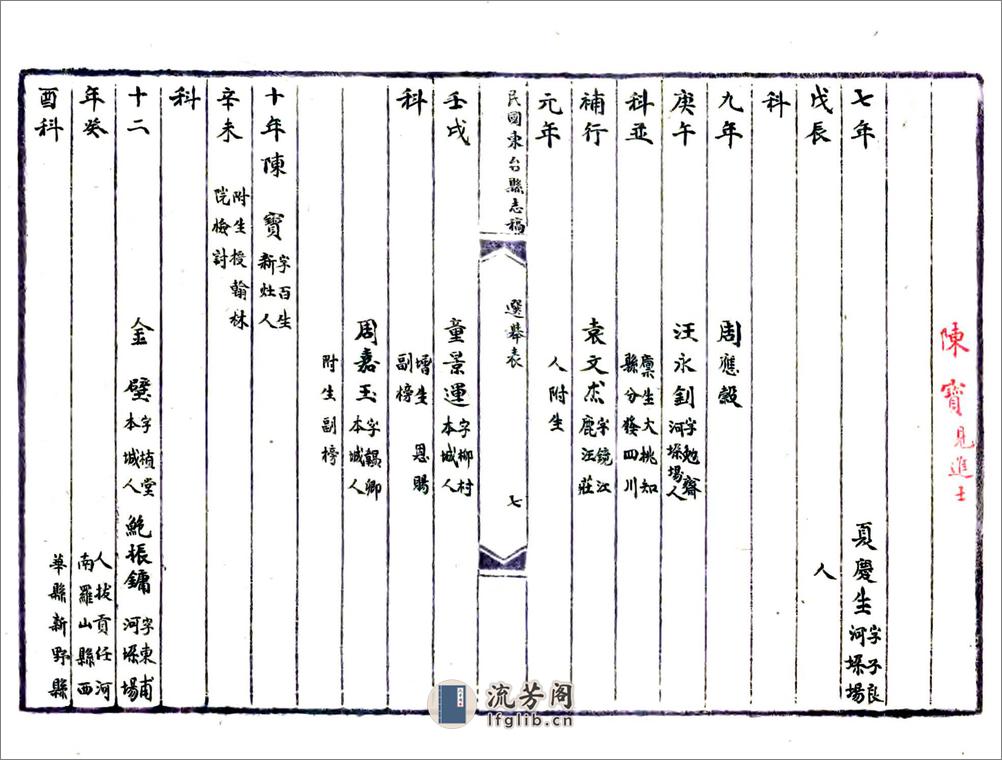 陳寶見進士
七年 夏慶生 字子良 河垛場
戊辰 人
科
九年 周應穀
庚午 汪永釗 字勉齋 河垛場人
科並 廩生大桃知 縣分發四川
補行 袁文杰 字鏡江 鹿汪莊
元年 人附生
民國東台縣志稿 選舉表 七
壬戌 童景運 字柳村 本城人
科 增生 恩賜 副榜
周嘉玉 字韞卿 本城人
附生副榜
十年 陳寶 字百生 新灶人
辛未 附生授翰林 院檢討
科
十二 金璧 字楨堂 本城人 鮑振鏞 字東甫 河垛場
年癸 人拔貢任河 南羅山縣西
酉科 華縣新野縣
流芳阁
lfglib.cn